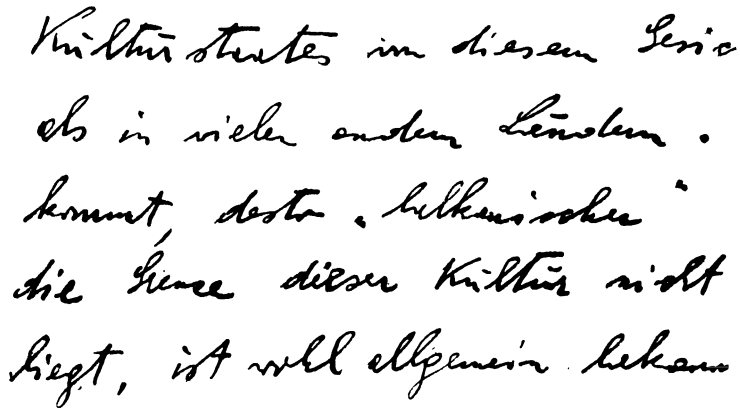 Kulturstaates in diesem Gesic
als in vielen andern Ländern.
kommt, desto „balkanischer"
die Grenze dieser Kultur nicht
liegt, ist wohl allgemein bekann